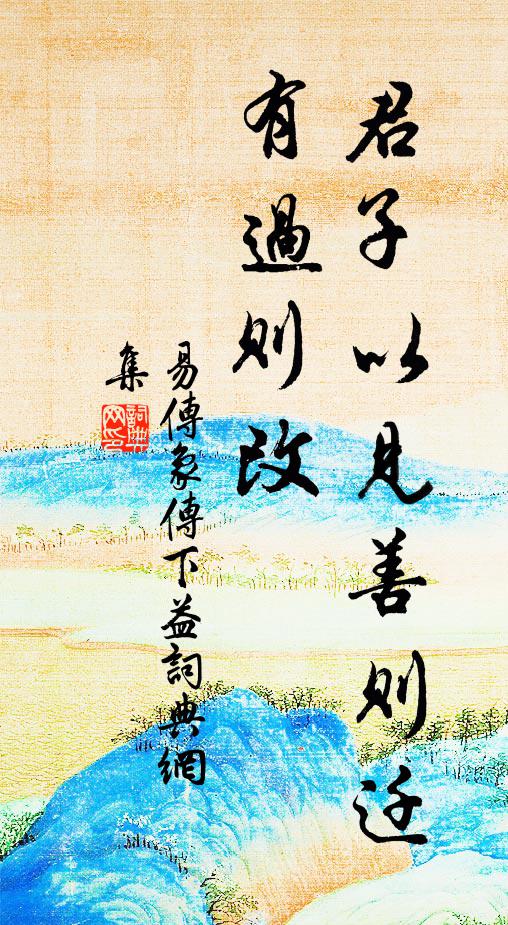 君子以见善则迁
有過则改
易傳象傳下益詞典網
集
詞典
网印